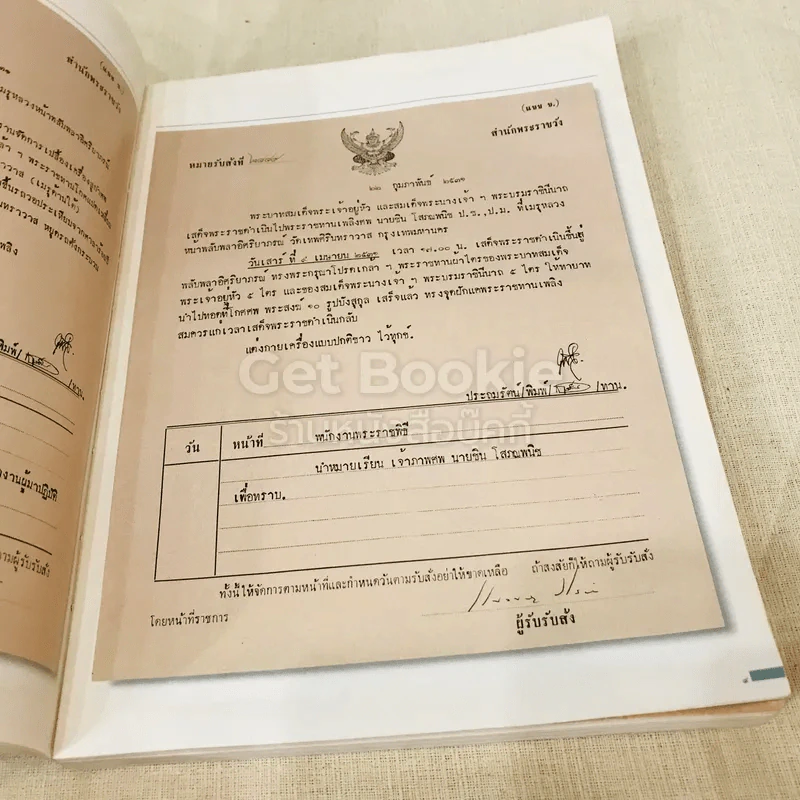 (แบบ ข.)
สำนักพระราชวัง
(แบบ ข.)
หมายรับสั่งที่
สำนักพระราชวัง
๒๒ กุมภาพันธ์ ๒๕๓๑
พระบาทสมเด็จพระเจ้าอยู่หัว และสมเด็จพระนางเจ้า ฯ พระบรมราชินีนาถ
เสด็จพระราชดำเนินไปพระราชทานเพลิงศพ นายชิน โสภณพนิช ป.จ.,ป.ม. ที่เมรุหลวง
หน้าพลับพลาอิศริยาภรณ์ วัดเทพศิรินทราวาส กรุงเทพมหานคร
วันเสาร์ ที่ ๙ เมษายน ๒๕๓๑ เวลา ๑๗.๐๐ น. เสด็จพระราชดำเนินขึ้นสู่
พลับพลาอิศริยาภรณ์ ทรงพระกรุณาโปรดเกล้า ฯ พระราชทานผ้าไตรของพระบาทสมเด็จ
พระเจ้าอยู่หัว ๕ ไตร และของสมเด็จพระนางเจ้า ฯ พระบรมราชินีนาถ ๕ ไตร ให้ทายาท
นำไปทอดที่โกศศพ พระสงฆ์ ๑๐ รูปบังสุกุล เสร็จแล้ว ทรงจุดฝักแคพระราชทานเพลิง
สมควรแก่เวลาเสด็จพระราชดำเนินกลับ
แต่งกายเครื่องแบบปกติขาว ไว้ทุกข์.
Get Bookie
ร้านหนังสือบุ๊คกี้
ประถมรัตน์/พิมพ์/ /ทาน.
วัน
หน้าที่ พนักงานพระราชพิธี
นำหมายเรียน เจ้าภาพศพ นายชิน โสภณพนิช
เพื่อทราบ.
ทั้งนี้ให้จัดการตามหน้าที่และกำหนดวันตามรับสั่งอย่าให้ขาดเหลือ ถ้าสงสัยก็ให้ถามผู้รับรับสั่ง
โดยหน้าที่ราชการ
ผู้รับรับสั่ง